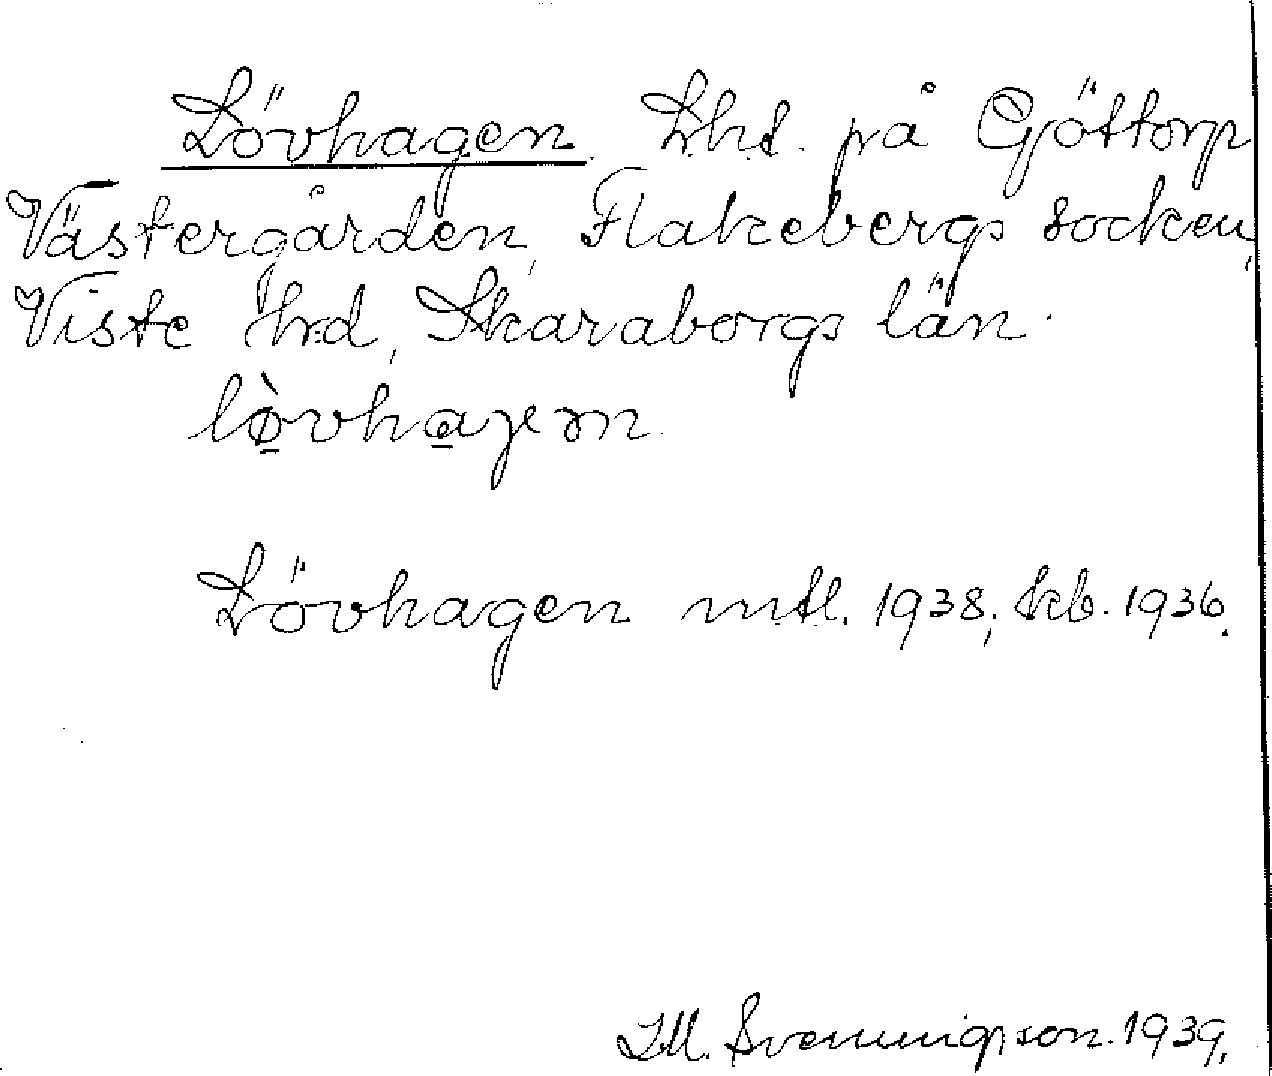 Lövhagen. Lht. på Göttorp
Västergården, Flakebergs socken,
Viste hd, Skaraborgs län.
lø̀vhaɣem
Lövhagen mtl. 1938; kb. 1936.
Svenningsson. 1939.